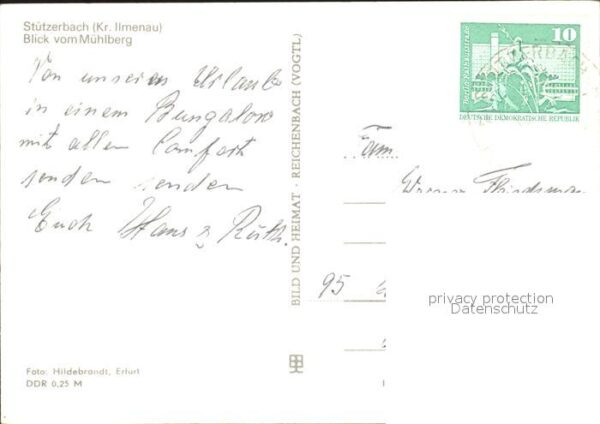 Stützerbach (Kr. Ilmenau)
Blick vom Mühlberg
Von unserem Urlaub
in einem Bungalow
mit allem Comfort
senden senden
Euch Hans & Ruth.
BILD UND HEIMAT · REICHENBACH (VOGTL)
10
Berlin Rathausstraße
DEUTSCHE DEMOKRATISCHE REPUBLIK
Fam.
Werner
95
privacy protection
Datenschutz
Foto: Hildebrandt, Erfurt
DDR 0,25 M